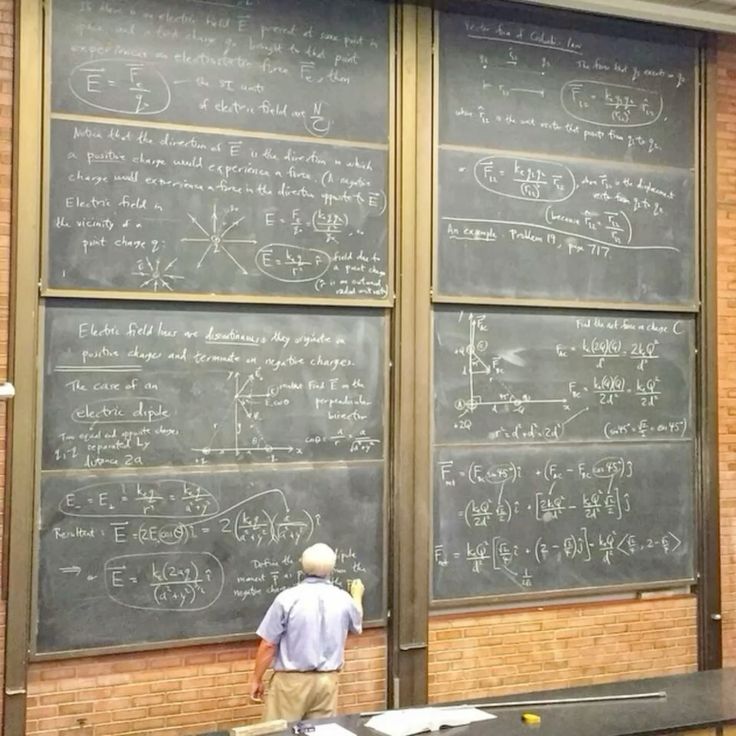 If there is an electric field E⃗ present at some point in
space, and a test charge q₀ brought to that point
experiences an electrostatic force F⃗ₑ, then
E⃗ = F⃗ₑ/q₀ — the SI units
of electric field are N/C
Notice that the direction of E⃗ is the direction in which
a positive charge would experience a force. (A negative
charge would experience a force in the direction opposite to E⃗)
Electric field in
the vicinity of a
point charge q:
E = Fₑ/q₀ =
E⃗ = kₑq/r² r̂
field due to
a point charge
(r̂ is an outward
radial unit vector)
Electric field lines are discontinuous; they originate on
positive charges and terminate on negative charges.
The case of an
electric dipole.
Two equal and opposite charges
q, -q separated by
distance 2a
Find E⃗ on the
perpendicular
bisector
cosθ = a/r = a/√(a²+y²)
E₋ = E₊ = kₑq/r² = kₑq/(a²+y²)
Resultant: E⃗ = (2E₊cosθ)î = 2(kₑq/(a²+y²))( )î
⇒ E⃗ = kₑ(2aq)/(a²+y²)^(3/2) î
Define the dipole
moment p⃗ as from the
negative charge
Vector form of Coulomb's law
q₁ r̂₁₂ q₂
The force that q₁ exerts on q₂
F⃗₁₂ = kₑq₁q₂/(r₁₂)² r̂₁₂,
where r̂₁₂ is the unit vector that points from q₁ to q₂.
or F⃗₁₂ = r⃗₁₂, where r⃗₁₂ is the displacement
vector from q₁ to q₂
(because r̂₁₂ = r⃗₁₂/r₁₂)
An example: Problem 19, page 717.
Find the net force on charge C
F_AC = kₑ(2Q)(Q)/d² = 2kₑQ²/d²
F_BC = kₑ(Q)(Q)/2d² = kₑQ²/2d²
r² = d² + d² = 2d²
(sin45° = √2/2 = cos45°)
F⃗net = (F_BC cos45°)î + (F_AC − F_BC cos45°)ĵ
= (kₑQ²/2d² √2/2)î + [2kₑQ²/d² − kₑQ²/2d² √2/2]ĵ
F⃗net = kₑQ²/d² [√2/4 î + (2 − √2/4)ĵ] = kₑQ²/d² ⟨√2/4, 2 − √2/4⟩